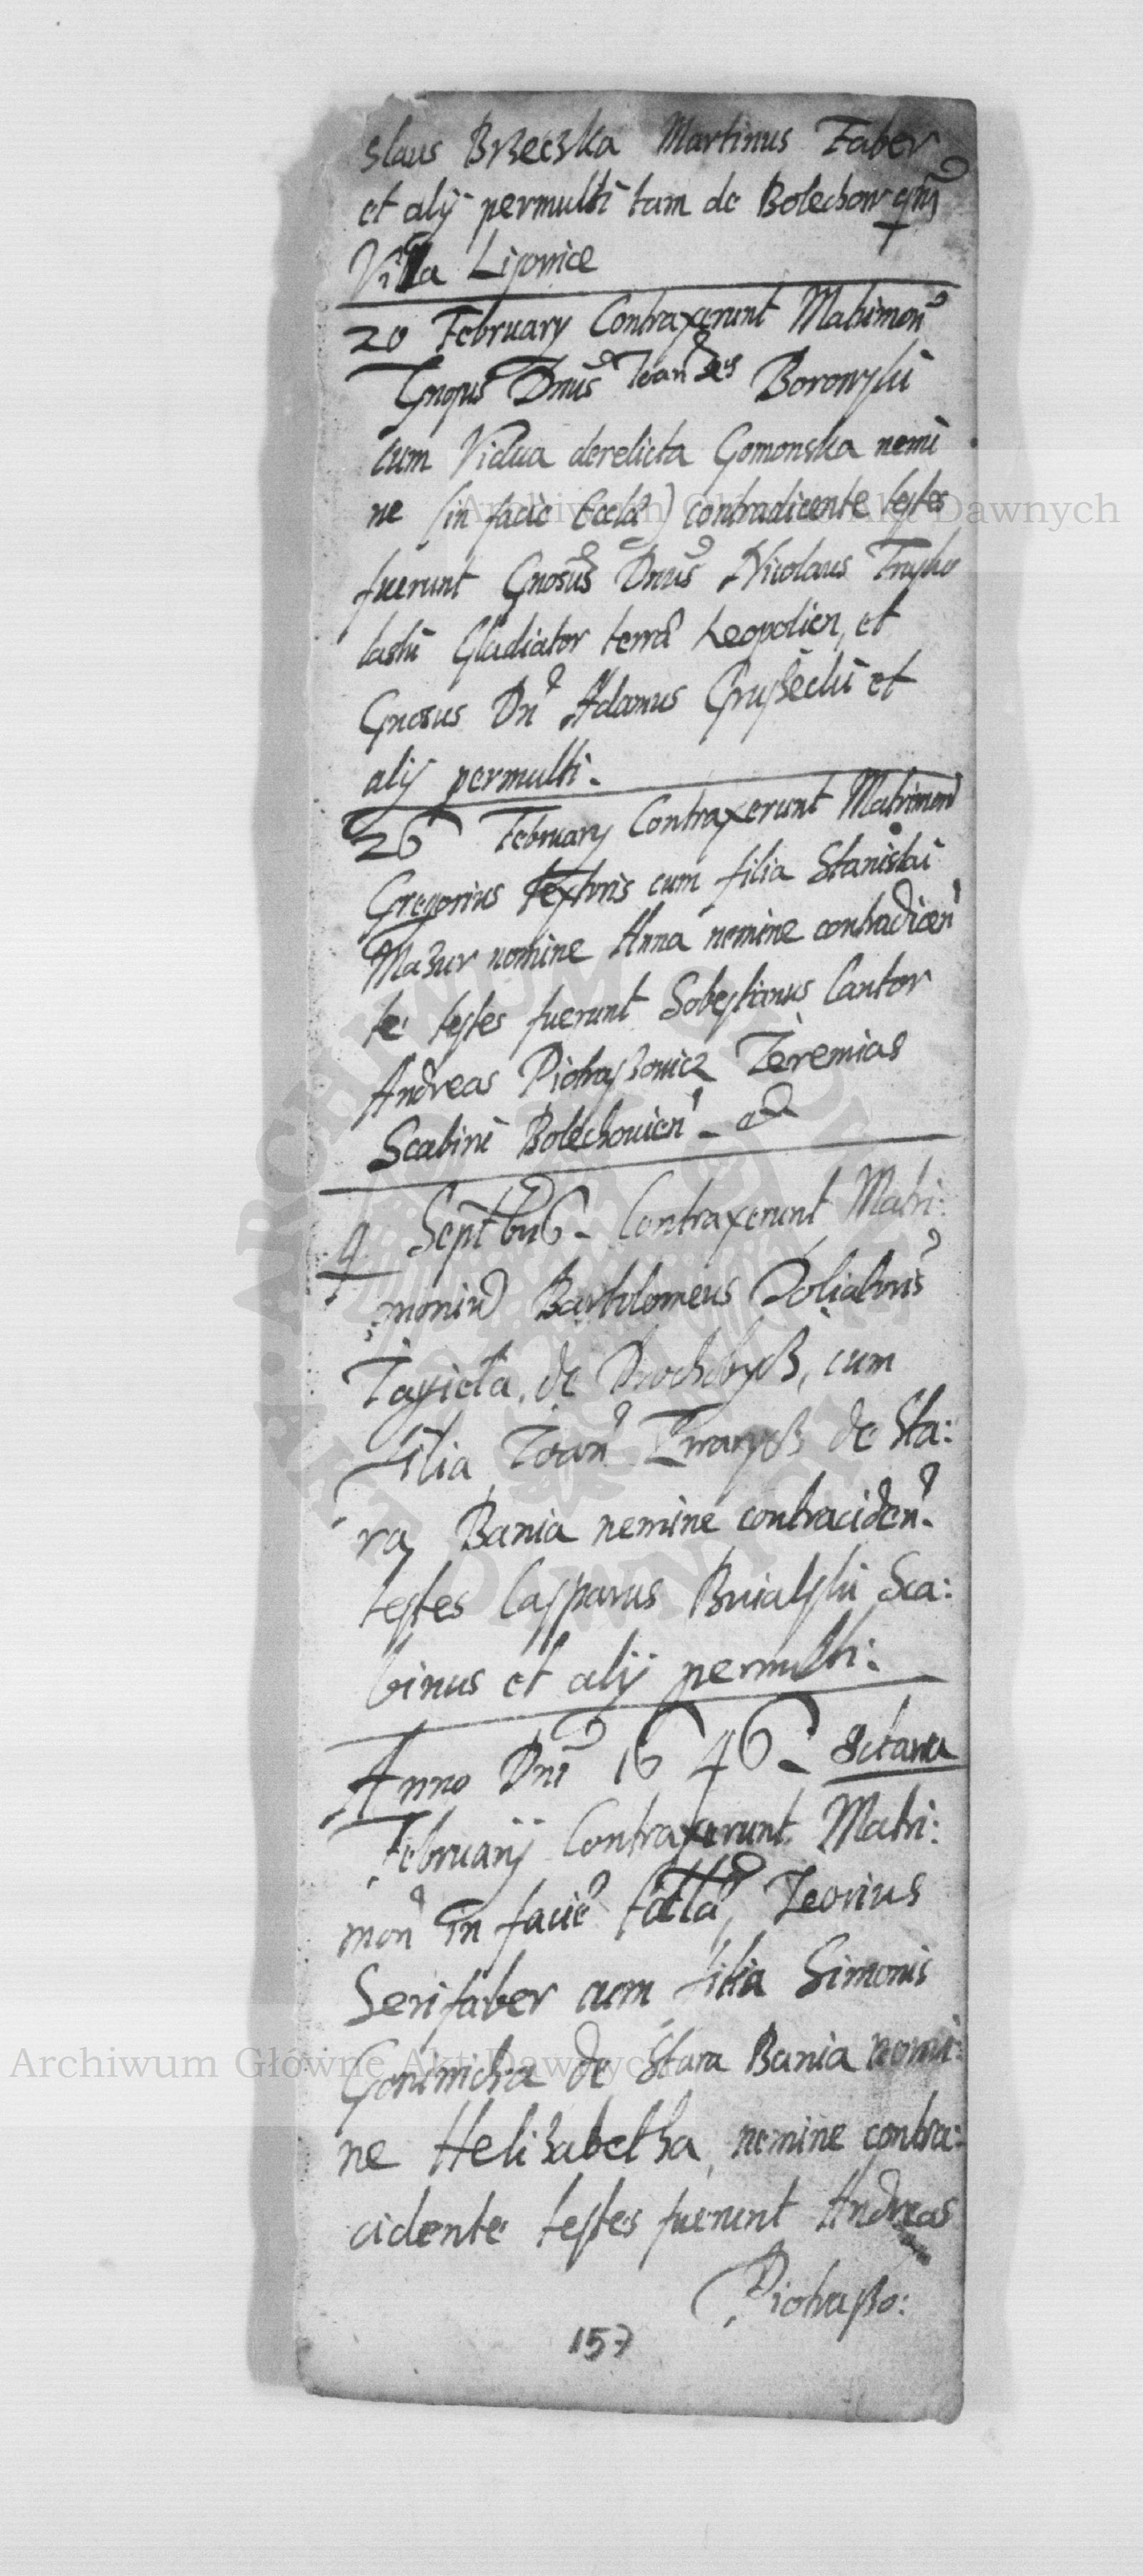 slaus Brzeczka Martinus Faber
et alij permulti tam de Bolechow qm̃
Villa Lipowice
20 February Contraxerunt Matrimon̉
Gnosus Dnus̉ Ioannes Borowski
cum Vidua derelicta Gomonska nemi
ne (in facie Eccla) contradicente testes
fuerunt Gnosus Dnus̉ Nicolaus Trusko
laski Gladiator terra Leopolien, et
Gnosus Dn̉ Adamus Gruszecki et
alij permulti.
26 February Contraxerunt Matrimon
Gregorius textoris cum filia Stanislai
Mazur nomine Anna nemine contradicen
te testes fuerunt Sobestianus Cantor
Andreas Piotraszowicz Ieremias
Scabini Bolechovien
9 Septbris Contraxerunt Matri:
moniu Bartolomeus Doliatoris
de Drohobysz, cum
filia Ioan̉ de Sta:
ra Bania nemine contraciden̉
testes Casparus Buialski Sca:
binus et alij permulti:
Anno Dni 1646 octava
Februarij Contraxerunt Matri:
mon̉ in facie Eccla, Ieorius
Serifaber cum filia Simonis
de Stara Bania nomi:
ne Helizabetha, nemine contra:
cidente testes fuerunt Andreas
Piotraszo:
157
Archiwum Główne Akt Dawnych